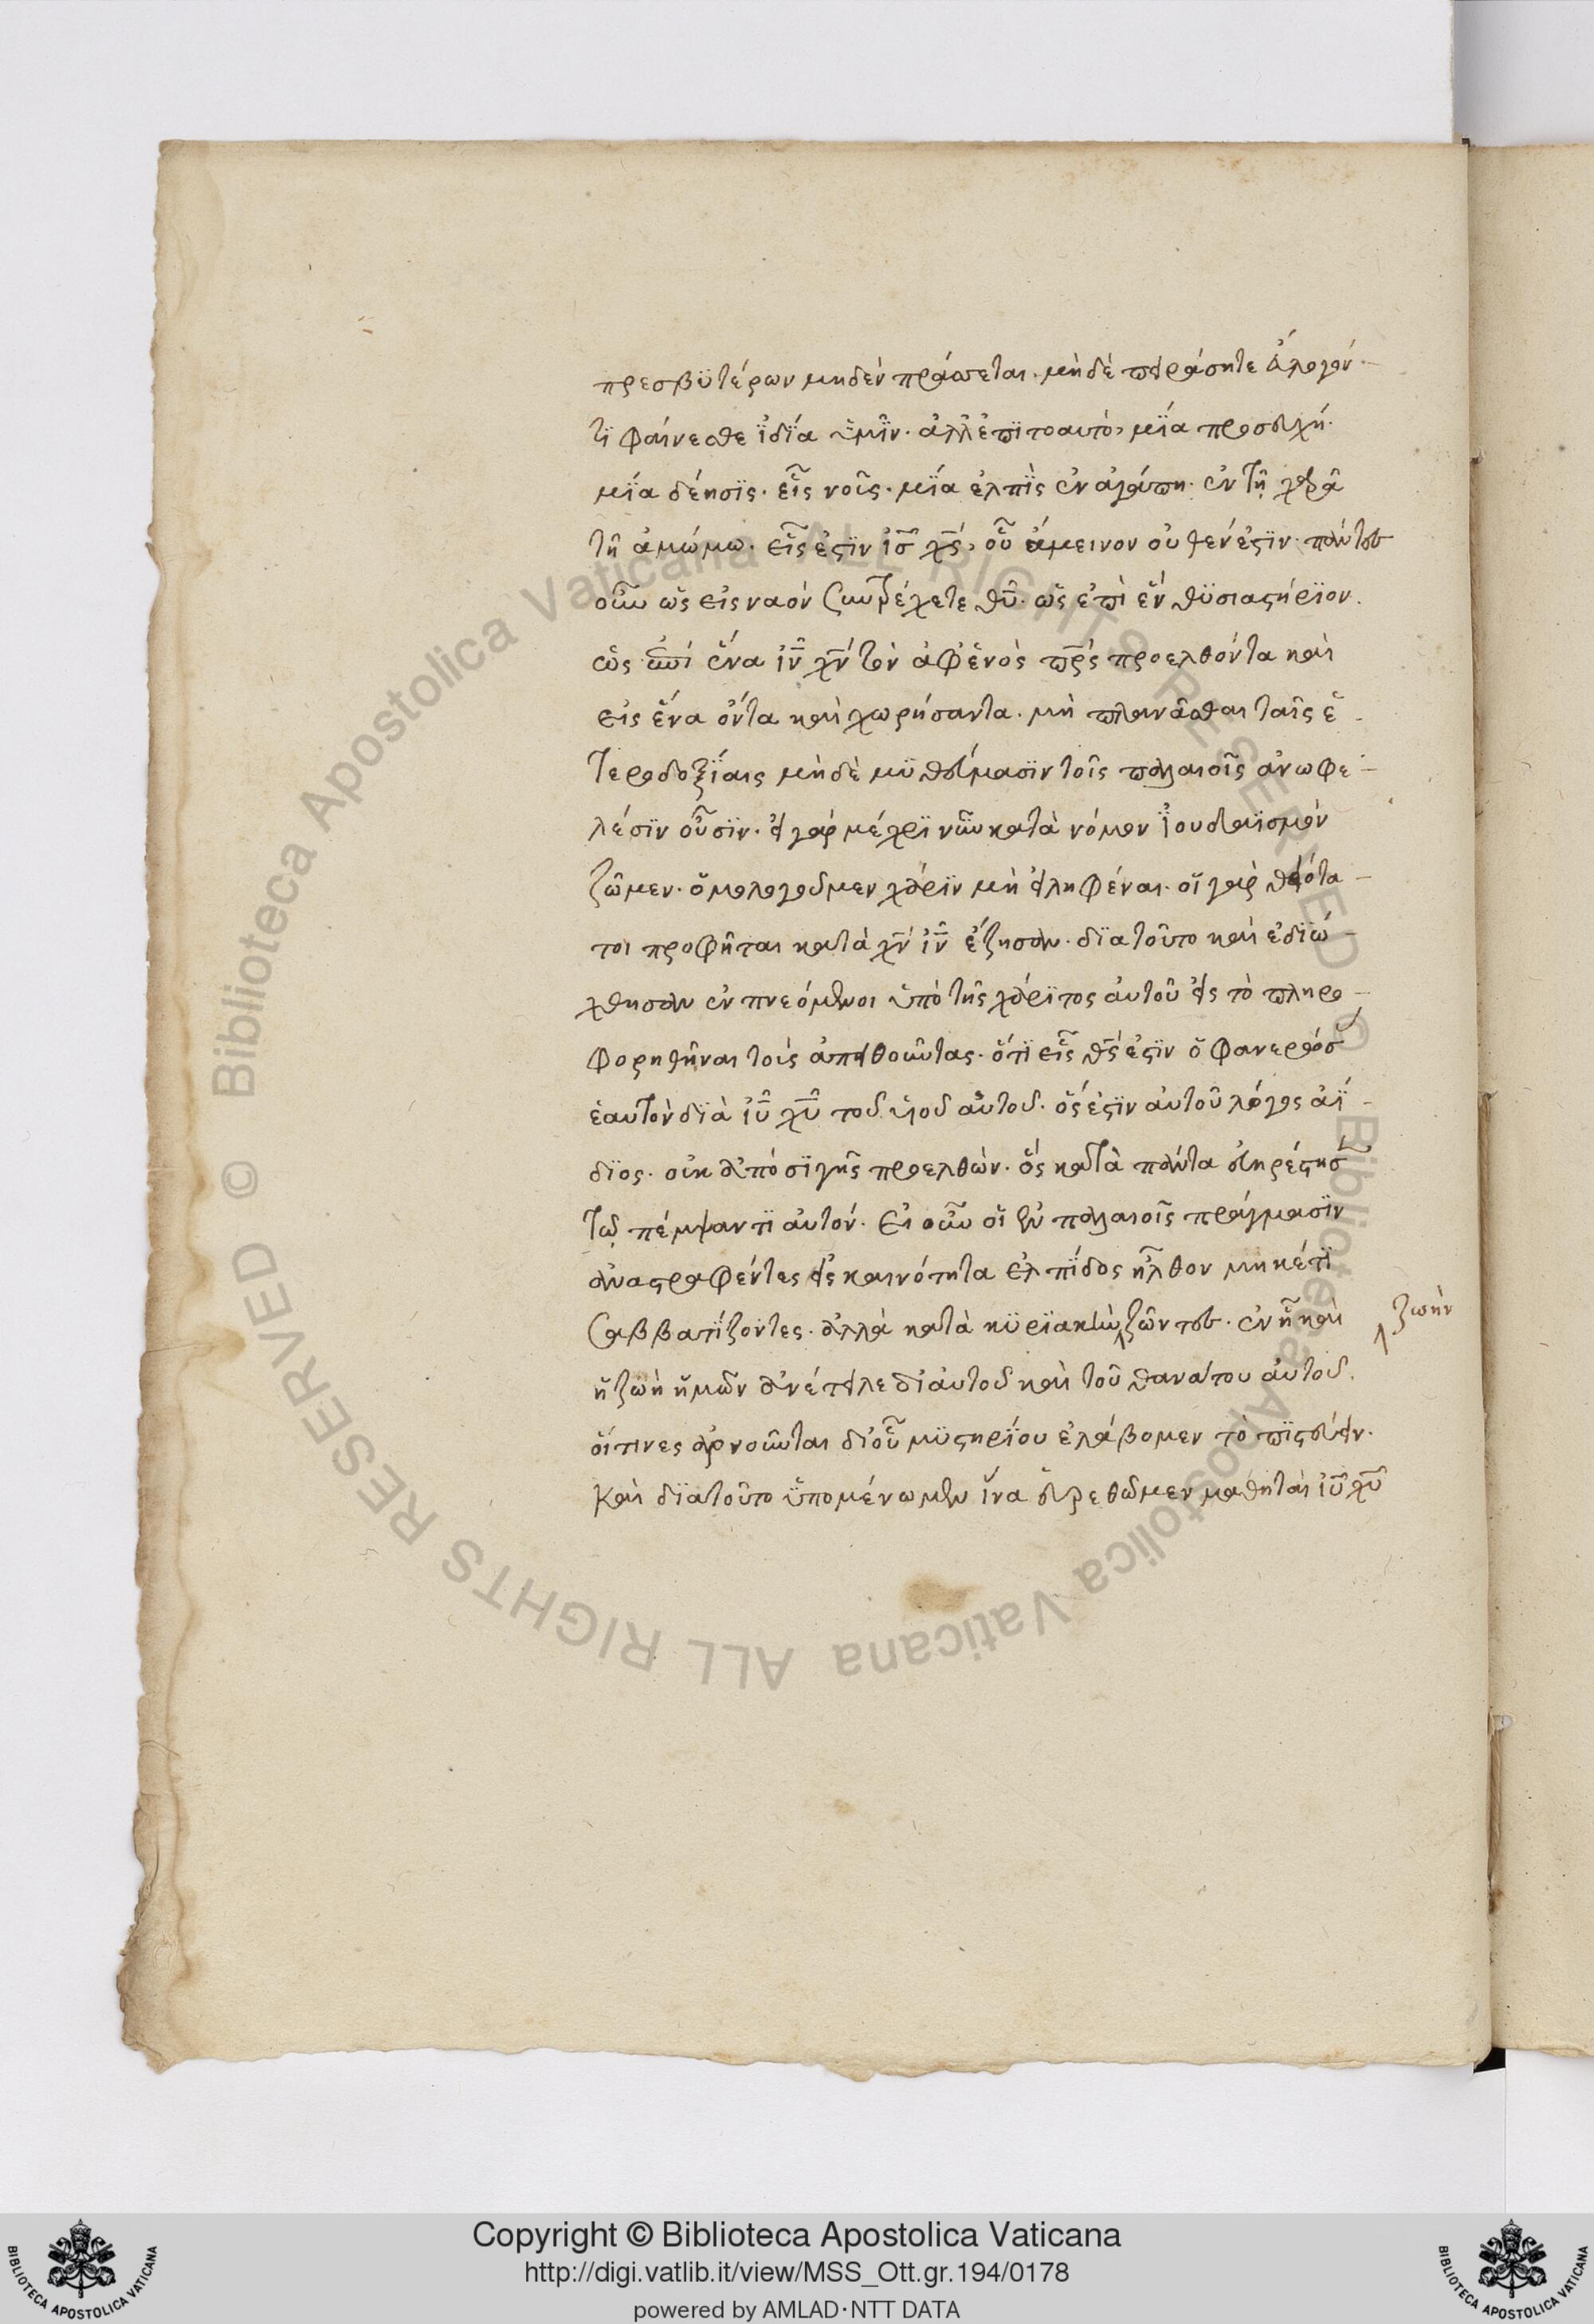 πρεσβϋτέρων μηδὲν πράσσεται. μὴδὲ πειράσητε ἄλογόν
τϊ φαίνεσθε ϊδία ὑμῖν. ἀλλ' ἐπϊτοαυτὸ, μϊά προσευχή.
μϊά δέησϊς. εἷς νοῦς. μϊά ἐλπϊς ἐν ἀγάπη. ἐν τῆ χαρᾶ
τῆ ἀμώμω. εἷς ἐστϊν ἰσ χσ, οὗ ἄμεινον οὐθὲν ἐστϊν. πάντες
οὖν ὡς εἰς ναὸν συντρέχετε θυ. ὡς ἐπὶ ἓν θϋσιαστήρϊον.
ὡς ἐπὶ ἕνα ἰν χν τὸν ἀφ' ἑνὸς πρς προελθόντα καὶ
εἰς ἕνα ὄντα καὶ χωρήσαντα. μὴ πλανᾶσθαι ταῖς ἑ
τεροδοξΐαις μὴδὲ μϋθεύμασϊν τοῖς παλαιοῖς ἀνωφε
λέσϊν οὖσϊν. εἰ γὰρ μέχρϊ νῦν κατὰ νόμον ϊουδαϊσμὸν
ζῶμεν. ὁμολογοῦμεν χάρϊν μὴ εἰληφέναι. οἱ γὰρ θειότα
τοι προφῆται κατὰ χν ἰν ἔζησαν. δϊατοῦτο καὶ ἐδϊώ
χθησαν ἐν πνεόμενοι ὑπὸ τῆς χάρϊτος αὐτοῦ εἰς τὸ πληρο
φορηθῆναι τοὺς ἀπειθοῦντας. ὅτϊ εἷς θς ἐστϊν ὁ φανερώσ
ἑαυτὸν δϊὰ ἰυ χυ τοῦ υἱοῦ αὐτοῦ. ὅς ἐστϊν αὐτοῦ λόγος ἀΐ
δϊος. οὐκ ἀπὸ σϊγῆς προελθών. ὃς κατὰ πάντα εὐηρέστησ
τῶ πέμψαντϊ αὐτόν. Εἰ οὖν οἱ ἐν παλαιοῖς πράγμασϊν
ἀναστραφέντες εἰς καινότητα ἐλπΐδος ἦλθον μηκέτϊ
σαββατΐζοντες. ἀλλὰ κατὰ κϋρϊακὴν ζῶντες. ἐν ἧ καὶ
ζωὴν
ἡ ζωὴ ἡμῶν ἀνέτειλε δι' αὐτοῦ καὶ τοῦ θανάτου αὐτοῦ.
οἵτινες ἀρνοῦνται δι' οὗ μϋστηρΐου ἐλάβομεν τὸ πϊστεύειν.
καὶ δϊατοῦτο ὑπομένωμεν ἵνα εὑρεθῶμεν μαθηταὶ ἰυ χυ
Copyright © Biblioteca Apostolica Vaticana
http://digi.vatlib.it/view/MSS_Ott.gr.194/0178
powered by AMLAD·NTT DATA